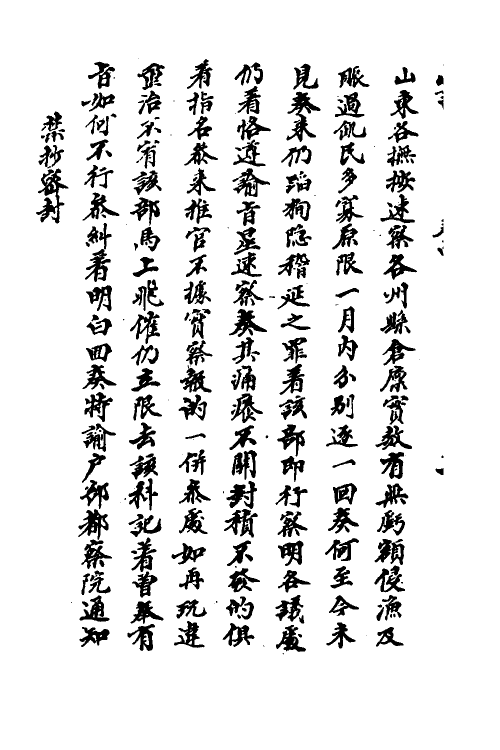 山東各撫按速察各州縣倉廩實数有無虧額侵漁及
賑過飢民多寡原限一月内分别逐一回奏何至今未
見奏来仍蹈徇隐稽延之罪着該部即行察明各議處
仍看恪遵諭旨星速察奏其痛癢不關封積不發的俱
着指名叅来推官不據實察報的一併叅處如再玩違
重治不宥該部馬上飛催仍立限去該科記着曽奉有
旨如何不行叅糾着明白回奏特諭户部都察院通知
禁抄密封